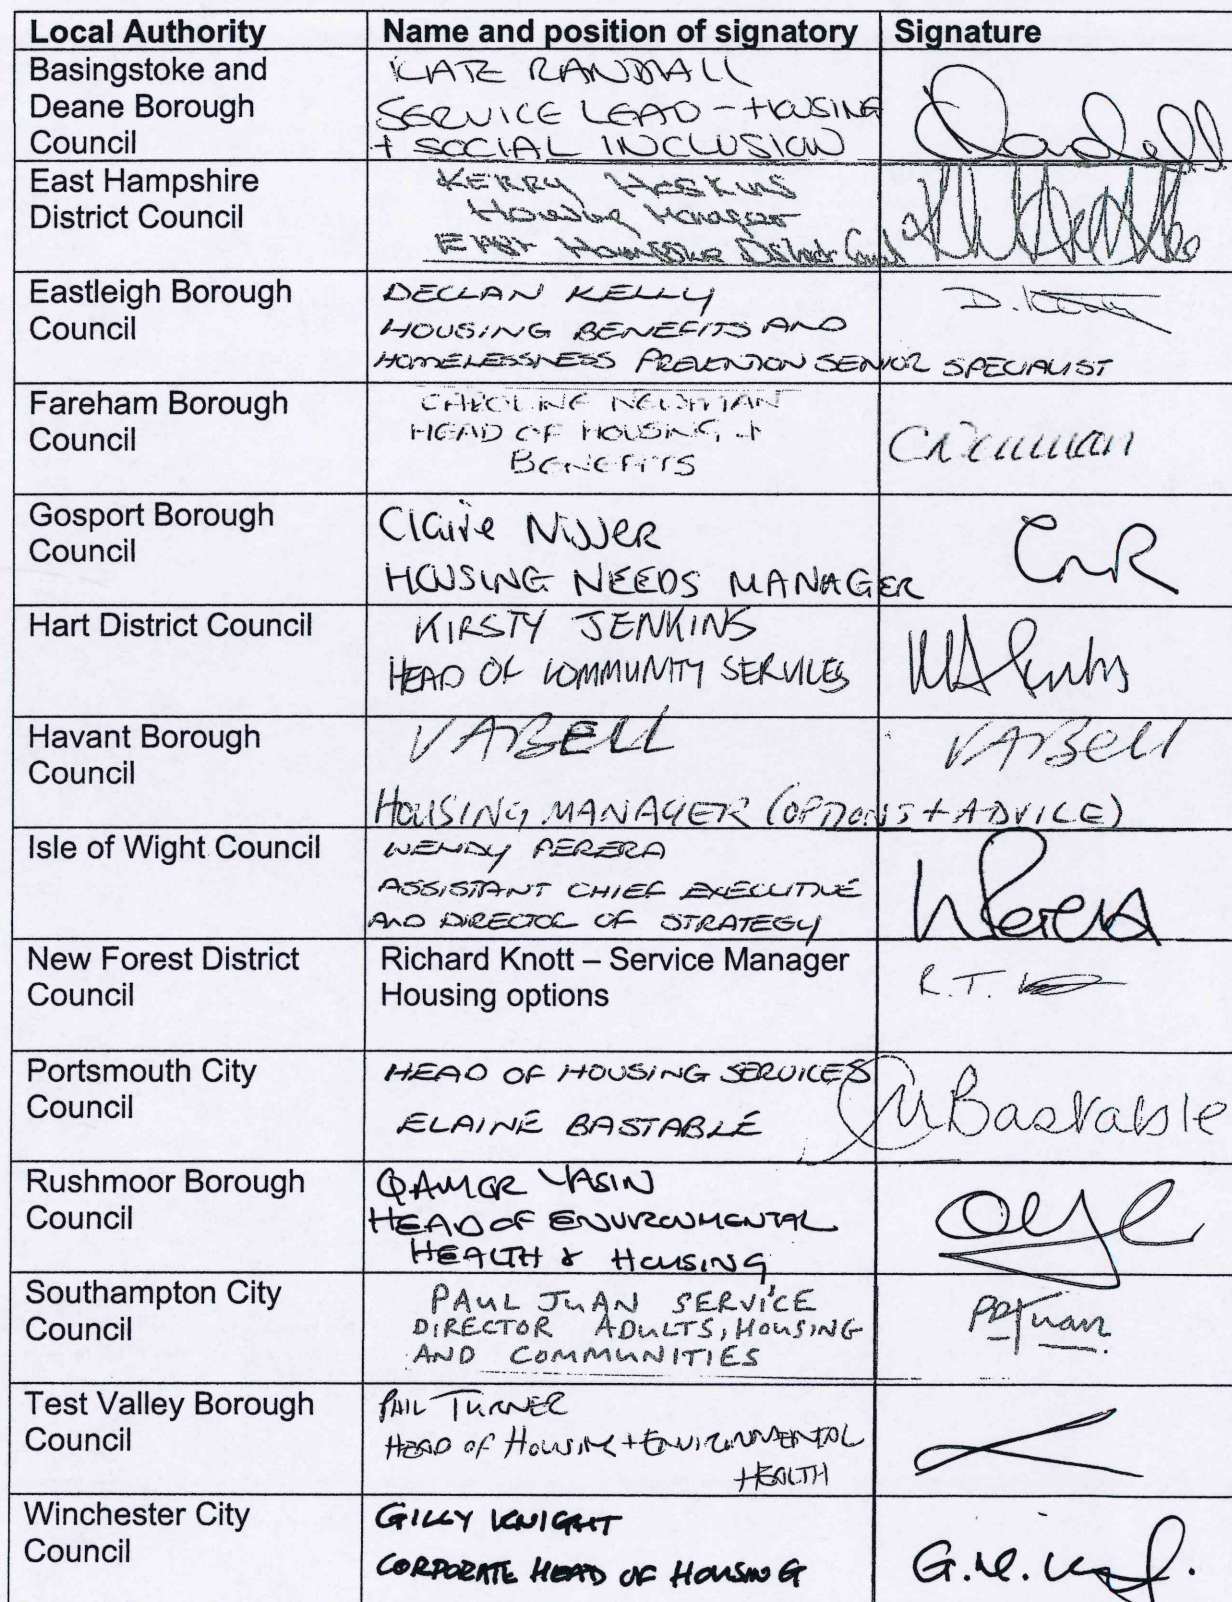 Local Authority Name and position of signatory Signature
Basingstoke and
Deane Borough
Council
KATE RANDALL
SERVICE LEAD - HOUSING
+ SOCIAL INCLUSION
East Hampshire
District Council
KERRY HOSKINS
Housing Manager
EAST HAMPSHIRE District Council
Eastleigh Borough
Council
DECLAN KELLY
HOUSING BENEFITS AND
HOMELESSNESS PREVENTION SENIOR SPECIALIST
D. Kelly
Fareham Borough
Council
CAROLINE NEWMAN
HEAD OF HOUSING +
BENEFITS
CNewman
Gosport Borough
Council
Claire
HOUSING NEEDS MANAGER
Hart District Council
KIRSTY JENKINS
HEAD OF COMMUNITY SERVICES
Havant Borough
Council
VABELL
HOUSING MANAGER (OPTIONS + ADVICE)
VABell
Isle of Wight Council
WENDY PERERA
ASSISTANT CHIEF EXECUTIVE
AND DIRECTOR OF STRATEGY
WPerera
New Forest District
Council
Richard Knott – Service Manager
Housing options
R.T.
Portsmouth City
Council
HEAD OF HOUSING SERVICES
ELAINE BASTABLE
Bastable
Rushmoor Borough
Council
QAMER YASIN
HEAD OF ENVIRONMENTAL
HEALTH & HOUSING
Southampton City
Council
PAUL JUAN SERVICE
DIRECTOR ADULTS, HOUSING
AND COMMUNITIES
PDJuan
Test Valley Borough
Council
PHIL TURNER
HEAD OF HOUSING + ENVIRONMENTAL
HEALTH
Winchester City
Council
GILLY KNIGHT
CORPORATE HEAD OF HOUSING